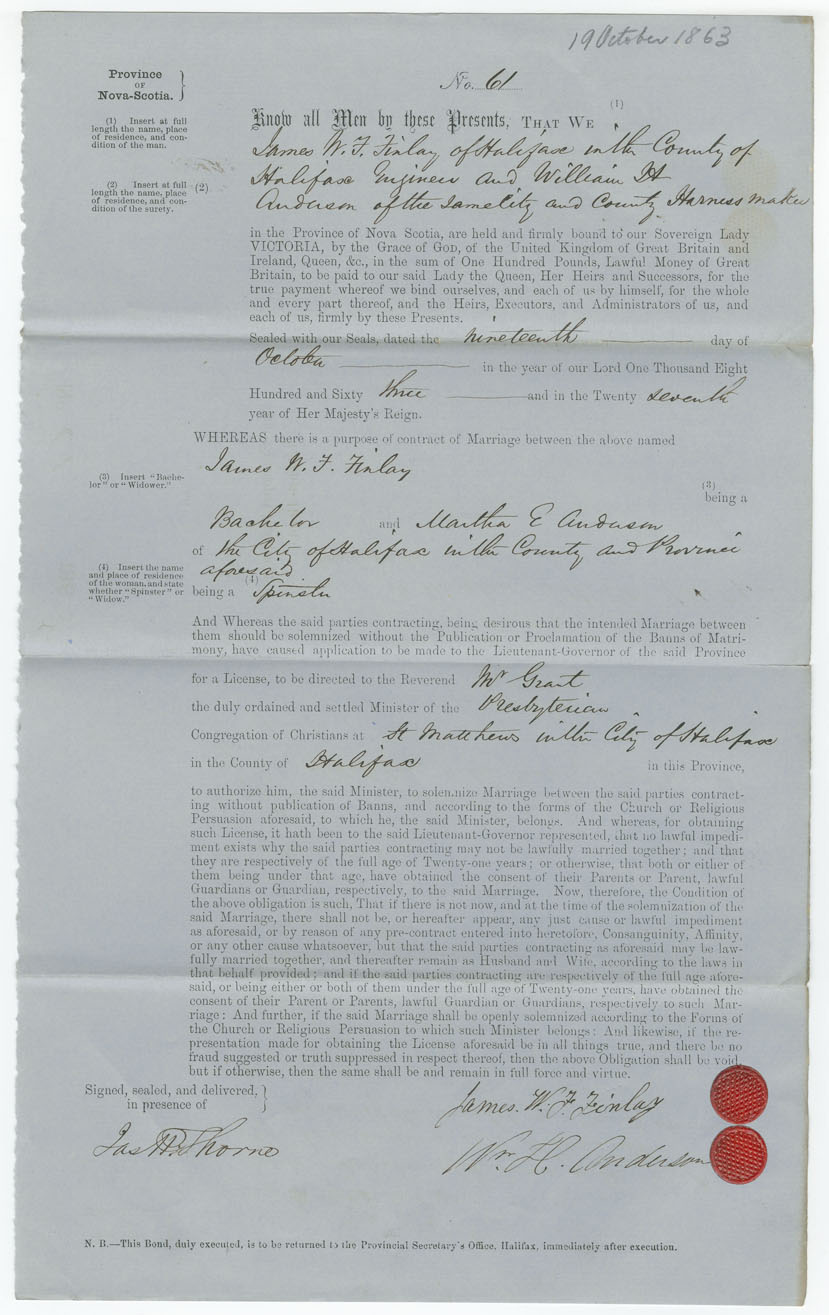 19 October 1863
Province
OF
Nova-Scotia.
No. 61
(1)
Know all Men by these Presents, THAT WE
(1) Insert at full
length the name, place
of residence, and con-
dition of the man.
James W. F. Finlay of Halifax in the County of
(2) Insert at full
length the name, place
of residence, and con-
dition of the surety.
(2)
Halifax Engineer and William H
Anderson of the Same City and County Harness maker
in the Province of Nova Scotia, are held and firmly bound to our Sovereign Lady
VICTORIA, by the Grace of GOD, of the United Kingdom of Great Britain and
Ireland, Queen, &c., in the sum of One Hundred Pounds, Lawful Money of Great
Britain, to be paid to our said Lady the Queen, Her Heirs and Successors, for the
true payment whereof we bind ourselves, and each of us by himself, for the whole
and every part thereof, and the Heirs, Executors, and Administrators of us, and
each of us, firmly by these Presents.
Sealed with our Seals, dated the nineteenth day of
October in the year of our Lord One Thousand Eight
Hundred and Sixty three and in the Twenty seventh
year of Her Majesty's Reign.
WHEREAS there is a purpose of contract of Marriage between the above named
James W. F. Finlay
(3) Insert "Bache-
lor" or "Widower."
(3)
being a
Bachelor and Martha E Anderson
of the City of Halifax in the County and Province
aforesaid
(4) Insert the name
and place of residence
of the woman, and state
whether "Spinster" or
"Widow."
(4)
being a Spinster
And Whereas the said parties contracting, being desirous that the intended Marriage between
them should be solemnized without the Publication or Proclamation of the Banns of Matri-
mony, have caused application to be made to the Lieutenant-Governor of the said Province
for a License, to be directed to the Reverend Mr Grant
the duly ordained and settled Minister of the Presbyterian
Congregation of Christians at St Matthews in the City of Halifax
in the County of Halifax in this Province,
to authorize him, the said Minister, to solemnize Marriage between the said parties contract-
ing without publication of Banns, and according to the forms of the Church or Religious
Persuasion aforesaid, to which he, the said Minister, belongs. And whereas, for obtaining
such License, it hath been to the said Lieutenant-Governor represented, that no lawful impedi-
ment exists why the said parties contracting may not be lawfully married together; and that
they are respectively of the full age of Twenty-one years; or otherwise, that both or either of
them being under that age, have obtained the consent of their Parents or Parent, lawful
Guardians or Guardian, respectively, to the said Marriage. Now, therefore, the Condition of
the above obligation is such, That if there is not now, and at the time of the solemnization of the
said Marriage, there shall not be, or hereafter appear, any just cause or lawful impediment
as aforesaid, or by reason of any pre-contract entered into heretofore, Consanguinity, Affinity,
or any other cause whatsoever, but that the said parties contracting as aforesaid may be law-
fully married together, and thereafter remain as Husband and Wife, according to the laws in
that behalf provided; and if the said parties contracting are respectively of the full age afore-
said, or being either or both of them under the full age of Twenty-one years, have obtained the
consent of their Parent or Parents, lawful Guardian or Guardians, respectively to such Mar-
riage: And further, if the said Marriage shall be openly solemnized according to the Forms of
the Church or Religious Persuasion to which such Minister belongs: And likewise, if the re-
presentation made for obtaining the License aforesaid be in all things true, and there be no
fraud suggested or truth suppressed in respect thereof, then the above Obligation shall be void,
but if otherwise, then the same shall be and remain in full force and virtue.
Signed, sealed, and delivered,
in presence of
James. W. F. Finlay
Jas H. Thorne
Wm. H. Anderson
N. B.—This Bond, duly executed, is to be returned to the Provincial Secretary's Office, Halifax, immediately after execution.